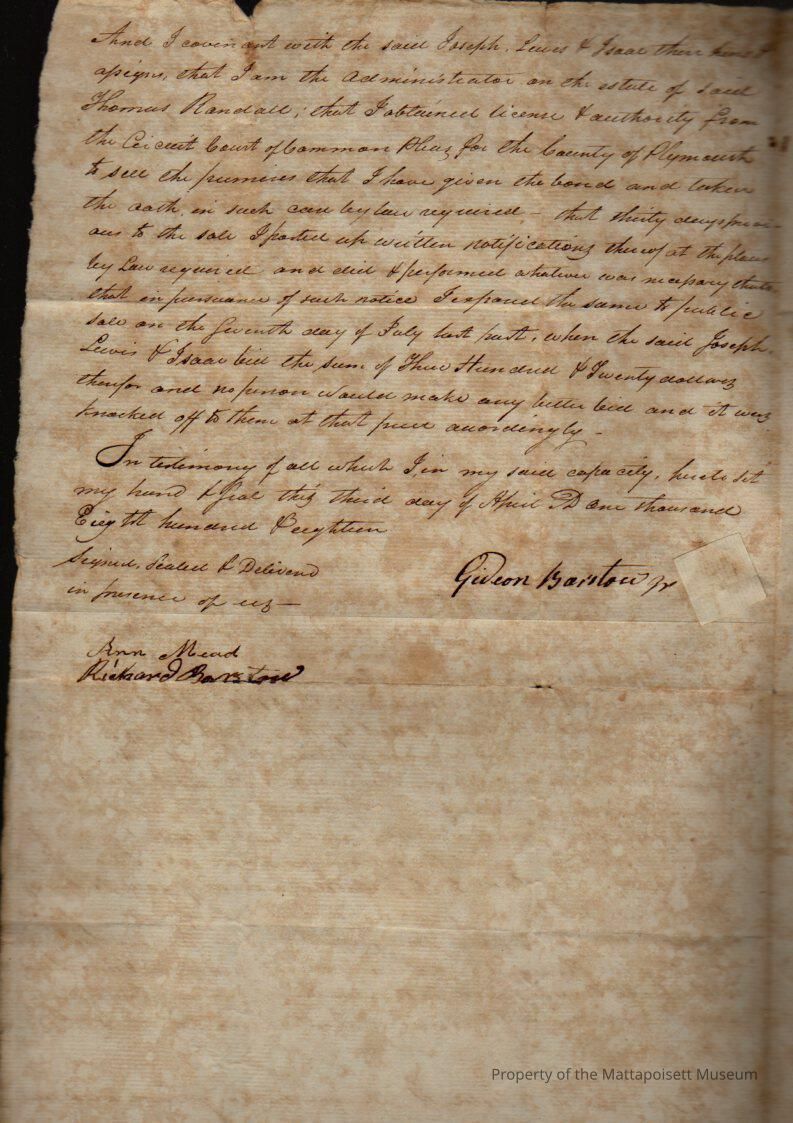 And I covenant with the said Joseph, Lewis & Isaac their heirs &
assigns, that I am the administrator on the estate of said
Thomas Randall; that I obtained license & authority from
the Circuit Court of Common Pleas for the County of Plymouth
to sell the premises that I have given the bond and taken
the oath, in such case by law required – that thirty days previ-
ous to the sale I posted up written notifications thereof at the places
by Law required and did & performed whatever was necessary
that in pursuance of such notice I exposed the same to public
sale on the seventh day of July last past, when the said Joseph,
Lewis & Isaac bid the sum of Three Hundred & Twenty dollars
therefor and no person would make any better bid and it was
knocked off to them at that price accordingly –
In testimony of all which I, in my said capacity, hereto set
my hand & Seal this third day of April AD one thousand
Eight hundred & eighteen
Signed, Sealed & Delivered
in presence of us –
Gideon Barstow Jr
Ann Mead
Richard Barstow
Property of the Mattapoisett Museum